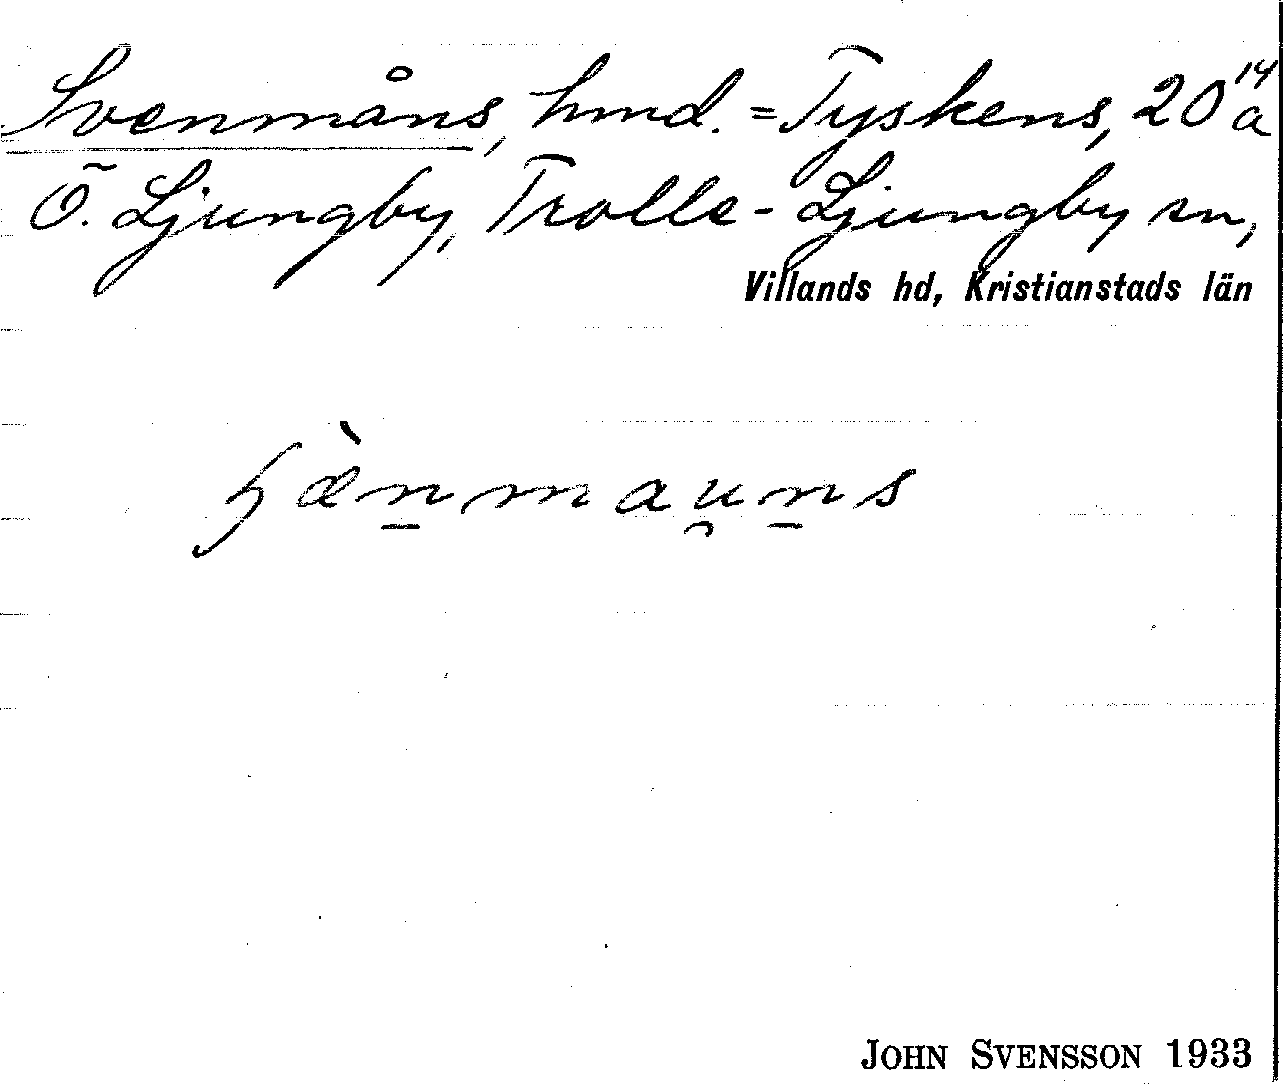 Svenmåns, hmd. = Tyskens, 20¹⁴ a
Ö. Ljungby, Trolle-Ljungby sn,
Villands hd, Kristianstads län
JOHN SVENSSON 1933